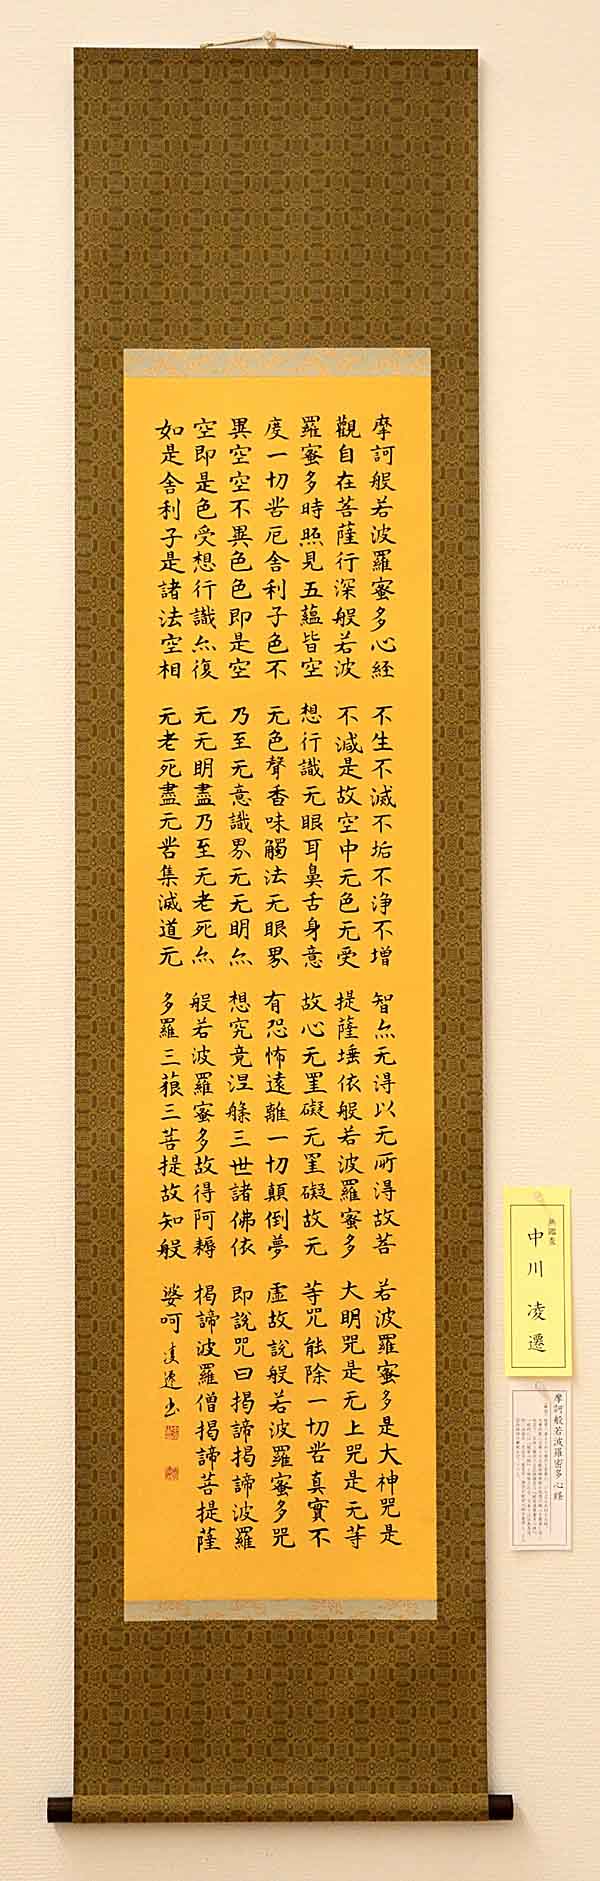 摩訶般若波羅蜜多心経
觀自在菩薩行深般若波
羅蜜多時照見五蘊皆空
度一切苦厄舎利子色不
異空空不異色色即是空
空即是色受想行識亦復
如是舎利子是諸法空相
不生不滅不垢不浄不增
不減是故空中无色无受
想行識无眼耳鼻舌身意
无色聲香味觸法无眼界
乃至无意識界无无明亦
无无明盡乃至无老死亦
无老死盡无苦集滅道无
智亦无得以无所得故菩
提薩埵依般若波羅蜜多
故心无罣礙无罣礙故无
有恐怖遠離一切顛倒夢
想究竟涅槃三世諸佛依
般若波羅蜜多故得阿耨
多羅三藐三菩提故知般
若波羅蜜多是大神咒是
大明咒是无上咒是无等
等咒能除一切苦真實不
虚故說般若波羅蜜多咒
即說咒曰揭諦揭諦波羅
揭諦波羅僧揭諦菩提薩
婆呵 凌遷書
無鑑査
中川 凌遷
摩訶般若波羅密多心経